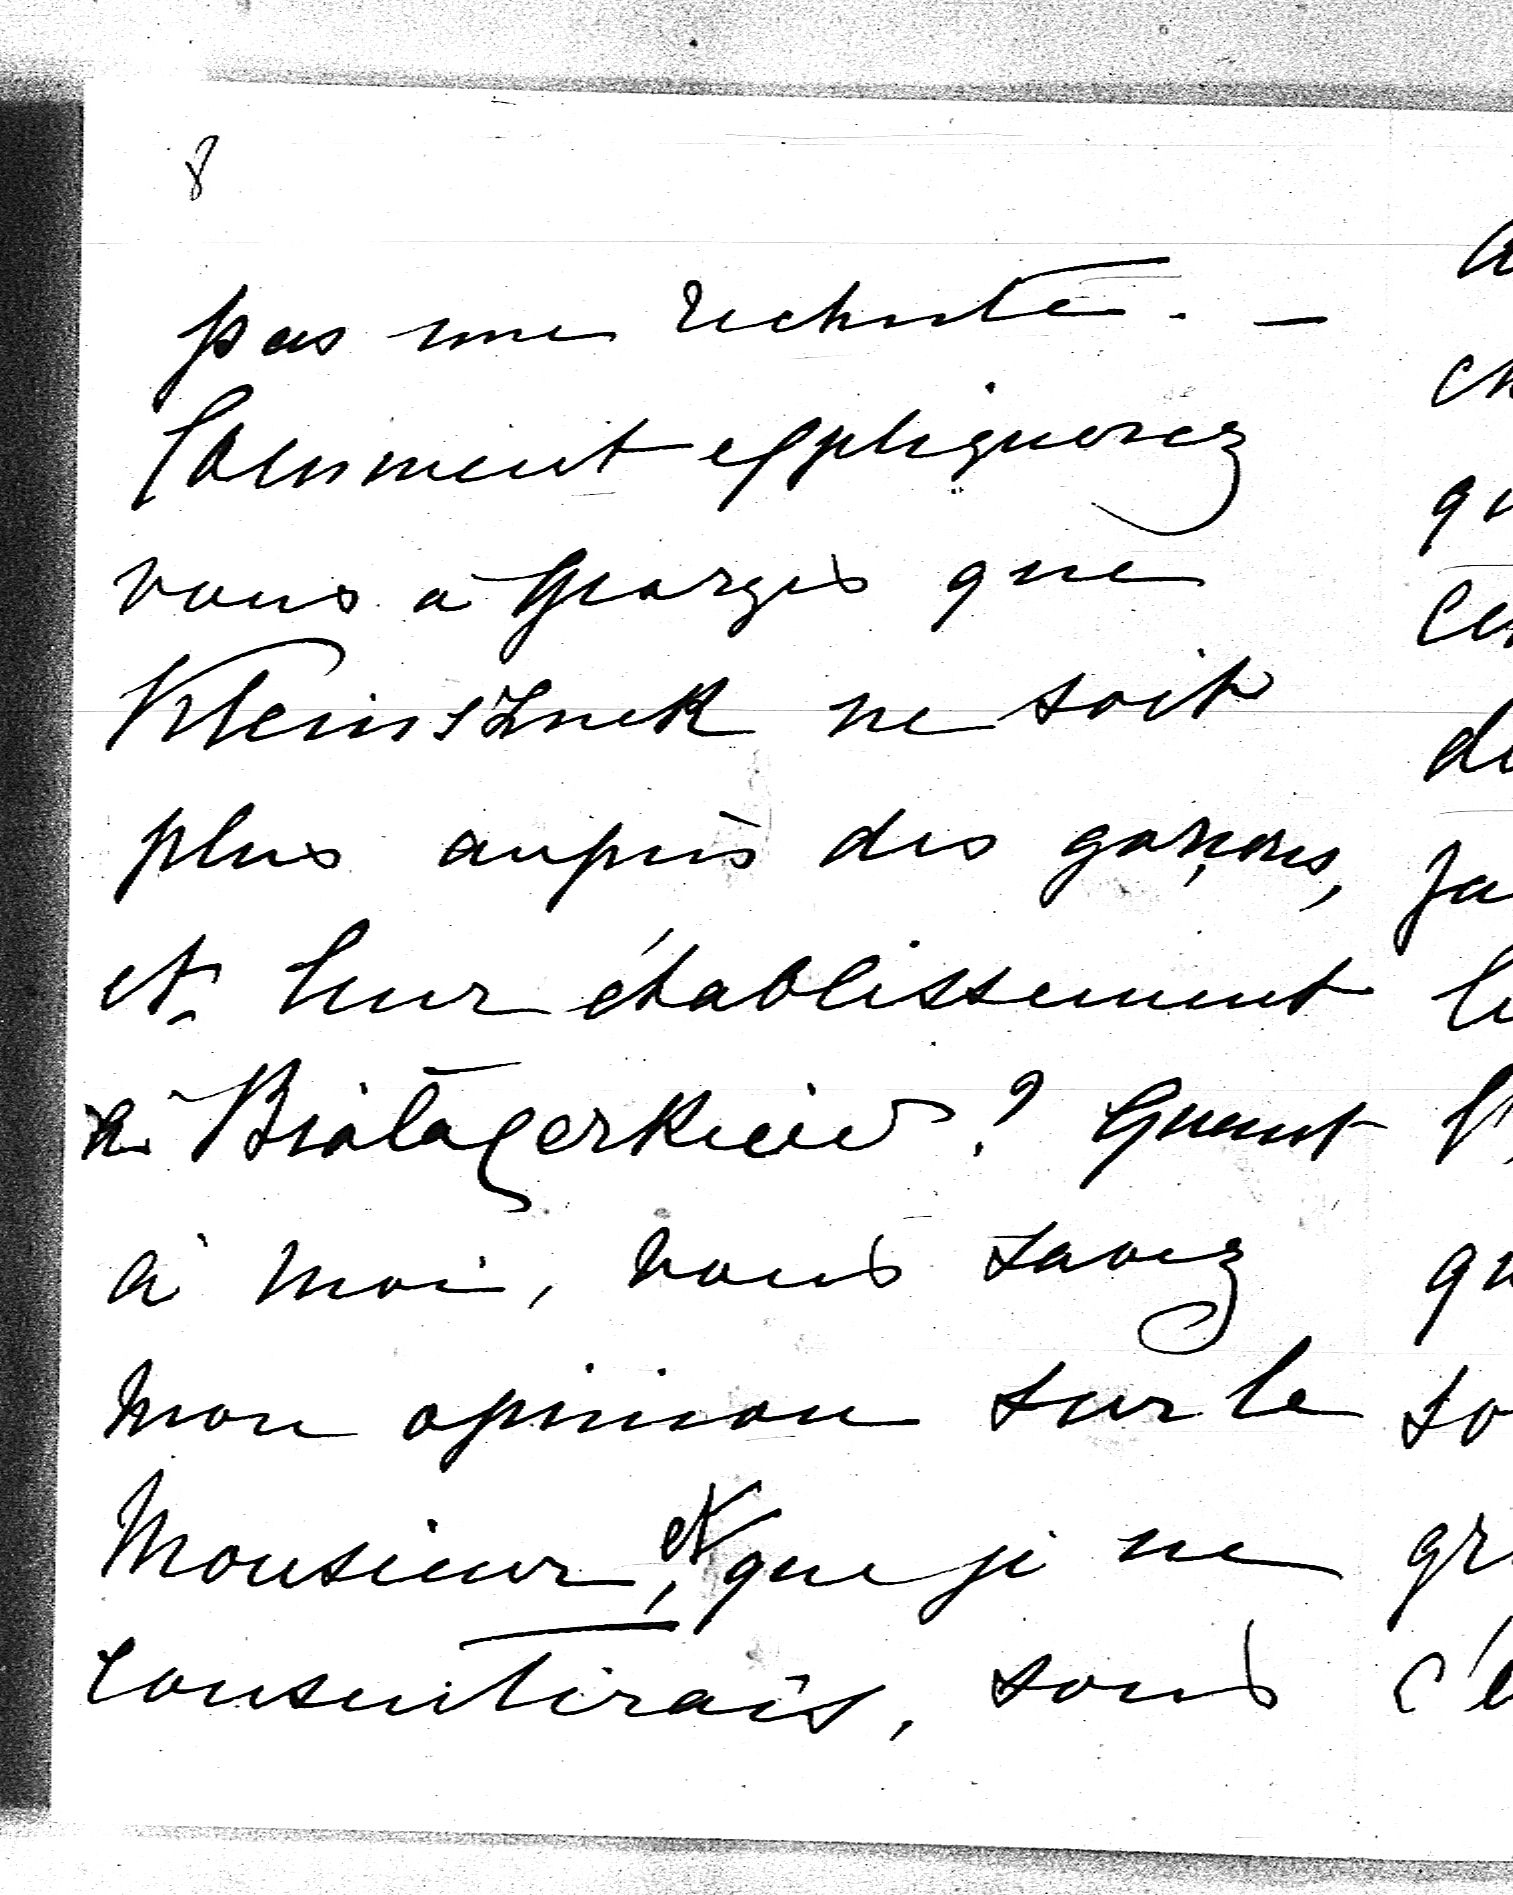 8
pas une rechute. —
Comment expliquerez
vous à Georges que
Kleinsznek ne soit
plus auprès des garçons,
et leur établissement
à Bialacerkiew? Quant
à moi, vous savez
mon opinion sur le
Monsieur, et que je ne
consentirais, sous